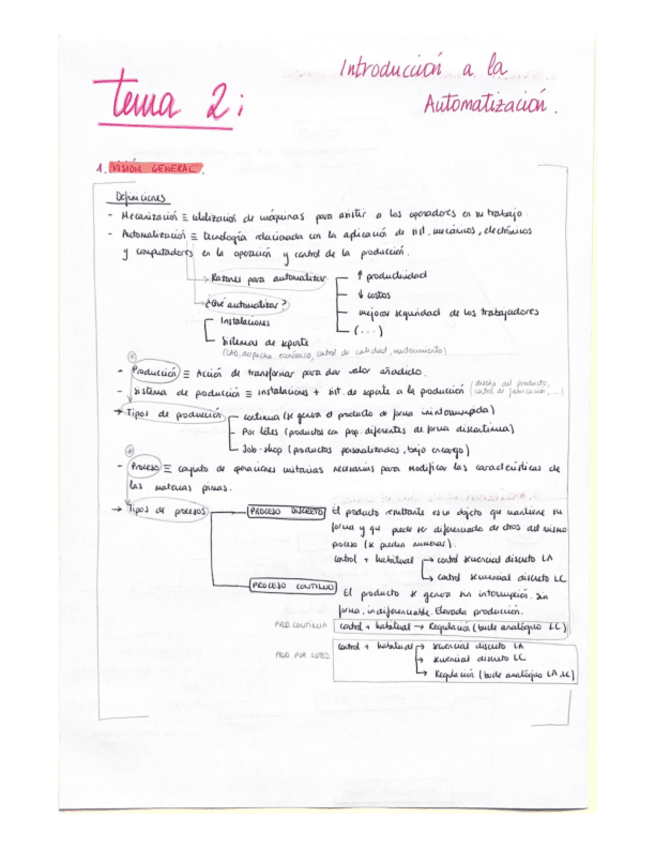 Tema 2:
Introducción a la
Automatización.
1. VISIÓN GENERAL.
Definiciones
- Mecanización ≡ utilización de máquinas para asistir a los operadores en su trabajo.
- Automatización ≡ tecnología relacionada con la aplicación de sist. mecánicos, electrónicos
y computadores en la operación y control de la producción.
→ Razones para automatizar
↑ productividad
↓ costos
mejorar seguridad de los trabajadores
(...)
→ ¿Qué automatizar?
Instalaciones
Sistemas de soporte
(CAO, despacho económico, control de calidad, mantenimiento)
- Producción ≡ Acción de transformar para dar valor añadido.
- Sistema de producción ≡ instalaciones + sist. de soporte a la producción (diseño del producto,
control de fabricación,...)
→ Tipos de producción
continua (se genera el producto de forma ininterrumpida)
Por lotes (productos con prop. diferentes de forma discontinua)
Job-shop (productos personalizados, bajo encargo)
- Proceso ≡ conjunto de operaciones unitarias necesarias para modificar las características de
las materias primas.
→ Tipos de procesos
PROCESO DISCRETO
El producto resultante es un objeto que mantiene su
forma y que puede ser diferenciado de otros del mismo
proceso (se pueden numerar).
control + habitual → control secuencial discreto LA
→ control secuencial discreto LC
PROCESO CONTINUO
El producto se genera sin interrupción. Sin
forma, indiferenciable. Elevada producción.
PROD. CONTINUA
control + habitual → Regulación (bucle analógico LC)
PROD. POR LOTES
control + habitual → secuencial discreto LA
→ secuencial discreto LC
→ Regulación (bucle analógico LA, LC)